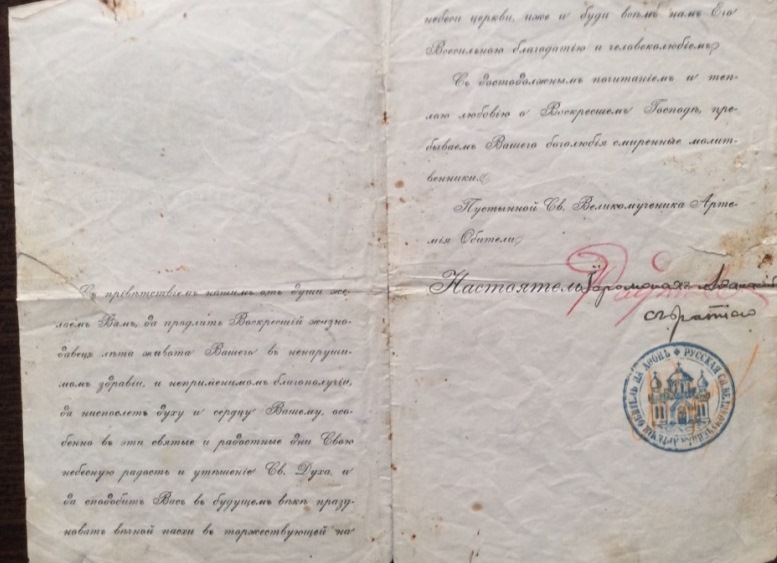 Съ привѣтствіемъ нашимъ отъ души же-
лаемъ Вамъ, да продлитъ Воскресшій жизно-
давецъ лѣта живота Вашего въ ненаруши-
момъ здравіи, и неприменимомъ благополучіи,
да ниспослетъ духу и сердцу Вашему, осо-
бенно въ эти святые и радостные дни Свою
небесную радость и утѣшеніе Св. Духа, и
да сподобитъ Васъ въ будущемъ вѣкѣ празд-
новать вѣчной пасхи въ торжествующей на
небеси церкви, иже и буди всѣмъ намъ Его
Всесильною благодатію и человеколюбіемъ.
Съ достодолжнымъ почитаніемъ и теп-
лою любовію о Воскресшемъ Господѣ, пре-
бываемъ Вашего боголюбія смиренные молит-
венники.
Пустынной Св. Великомученика Арте-
мія Обители,
Настоятель Іеромонахъ
съ братіею
РУССКАЯ СВ. ОБИТЕЛЬ НА АѲОНѢ